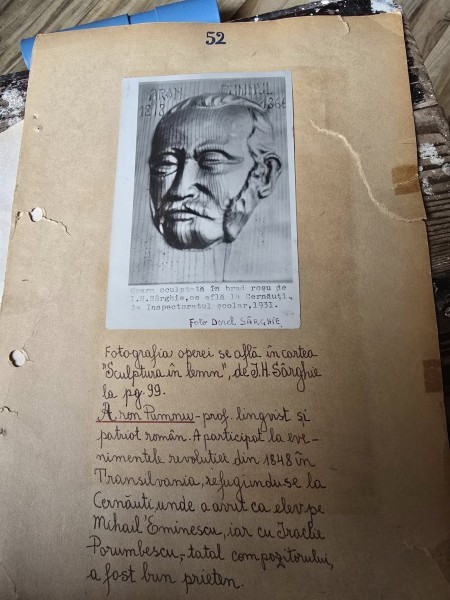 52
ARON PUMNUL
1818 1866
Opera sculptată în brad roşu de
I.H.Sârghie, se află la Cernăuţi,
la Inspectoratul şcolar, 1931.
Foto Dorel SÂRGHIE,
Fotografia operei se află în cartea
"Sculptura în lemn", de I.H. Sârghie
la pg. 99.
Aron Pumnu - prof. lingvist şi
patriot român. A participat la eve-
nimentele revoluţiei din 1848 în
Transilvania, refugiindu-se la
Cernăuti, unde a avut ca elev pe
Mihail Eminescu, iar cu Iraclie
Porumbescu, - tatăl compozitorului,
a fost bun prieten.